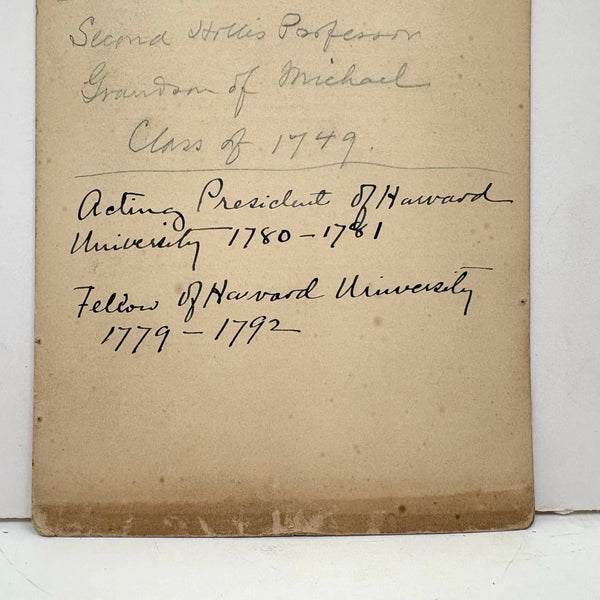 Second Hollis Professor
Grandson of Michael
Class of 1749.
Acting President of Harvard
University 1780-1781
Fellow of Harvard University
1779-1792